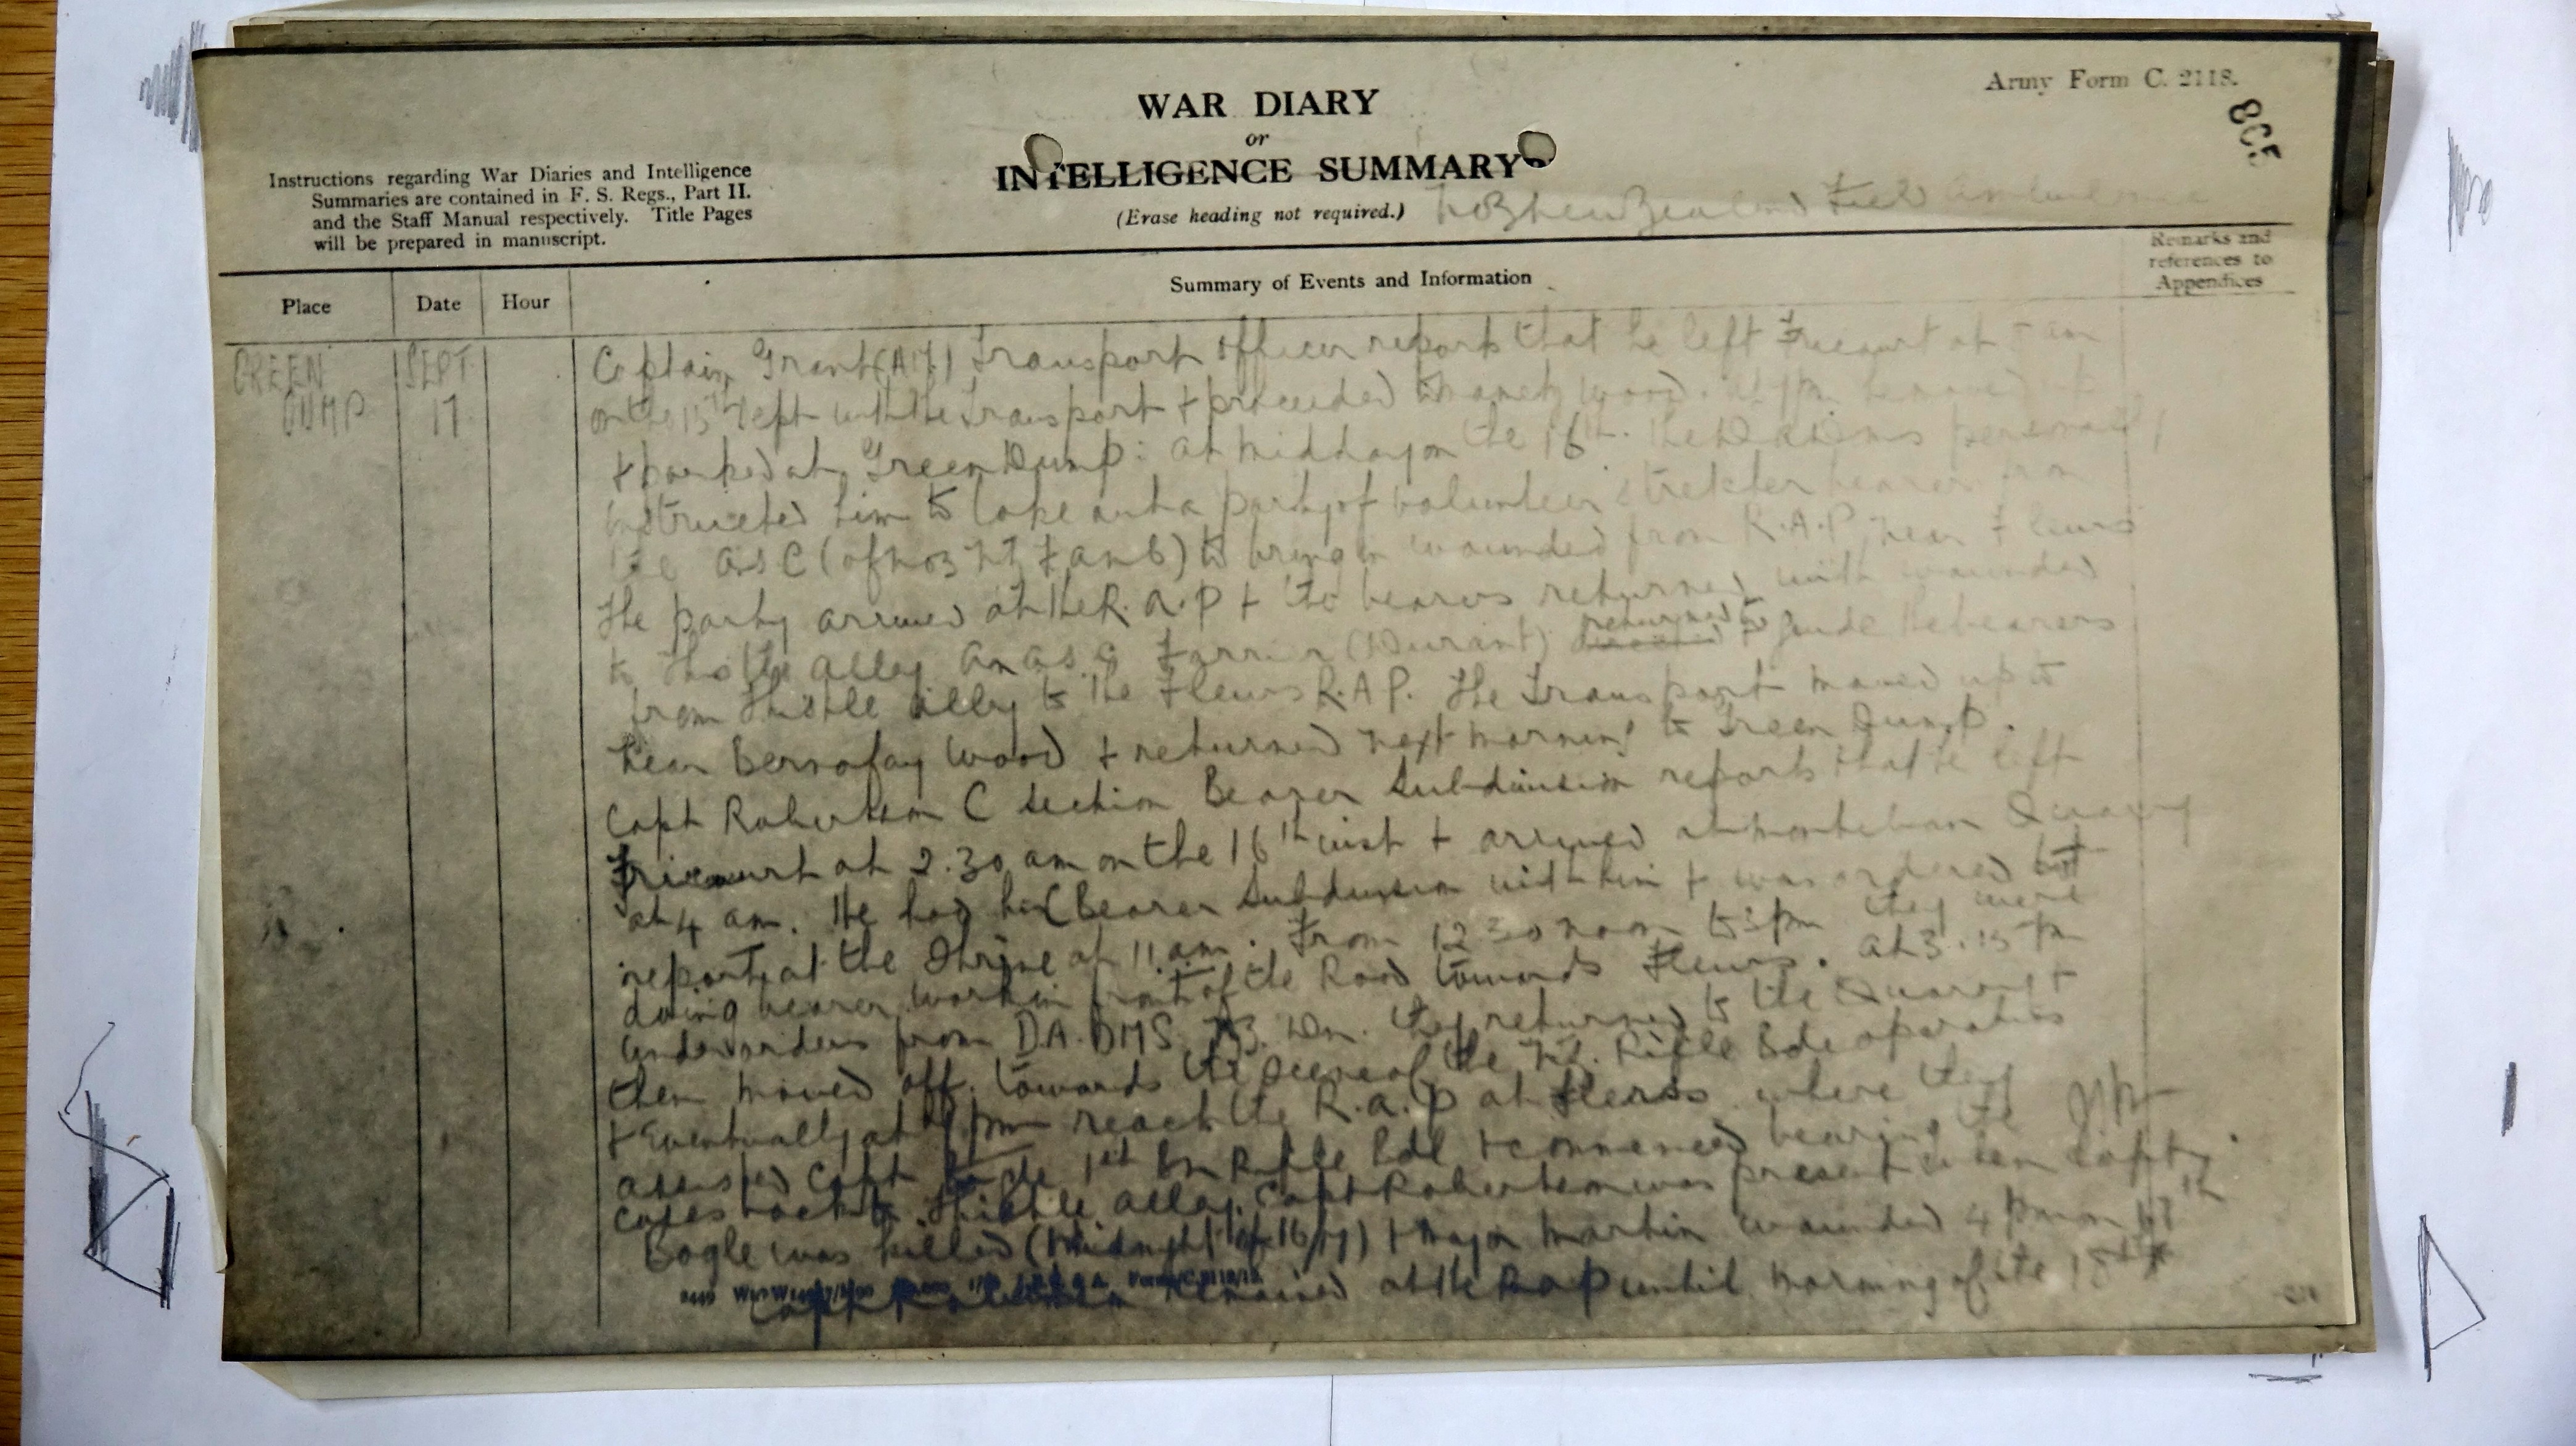 Army Form C. 2118.
WAR DIARY
or
INTELLIGENCE SUMMARY
(Erase heading not required.)
No 3 New Zealand Field Ambulance
Instructions regarding War Diaries and Intelligence
Summaries are contained in F. S. Regs., Part II.
and the Staff Manual respectively. Title Pages
will be prepared in manuscript.
Place
Date
Hour
Summary of Events and Information
Remarks and
references to
Appendices
GREEN
DUMP
SEPT
17
Captain Grant (A.A.) Transport officer reports that he left Fricourt at am
on the 15th Sept with the Transport + proceeded to Mametz Wood. At pm he moved up
+ parked at Green Dump: at midday on the 16th. the DADMS personally
instructed him to take out a party of volunteer stretcher bearers from
the ASC (of No 3 NZ F Amb) to bring in wounded from R.A.P. near Flers
The party arrived at the R.A.P + the bearers returned with wounded
to Thistle Alley An A.S.C Farrier (Durant) returned to guide the bearers
from Thistle Alley to the Flers R.A.P. The transport moved up to
near Bernafay Wood + returned next morning to Green Dump.
Capt Robertson C Section Bearer Subdivision reports that he left
Fricourt at 2.30 am on the 16th inst + arrived at Montauban Quarry
at 4 am. He had his C Bearer Subdivision with him + was ordered to
report at the Shrine at 11 am. From 12 30 noon to 3 pm they were
doing bearer work in front of the Road towards Flers. At 3.15 pm
under orders from D.A.DMS NZ. Dn. they returned to the Quarry +
then moved off towards the scene of the NZ. Rifle Bde operations
+ eventually at pm reach the R.A.P at Flers where they
assisted Capt Bogle 1st Bn Rifle Bde + commenced bearing the
cases back to Thistle Alley. Capt Robertson was present when Capt
Bogle was killed (Midnight of 16/17) + Major Martin wounded 4 pm on 17th
Capt Robertson remained at the RAP until morning of the 18th